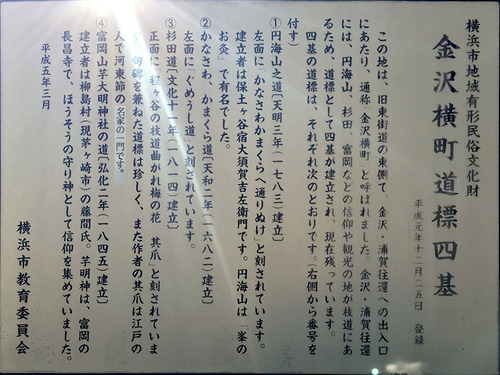 横浜市地域有形民俗文化財
金沢横町道標四基
平成元年十二月二五日　登録
この地は、旧東街道の東側で、金沢・浦賀往還への出入口
にあたり、通称「金沢横町」と呼ばれました。金沢・浦賀往還
には、円海山、杉田、富岡などの信仰や観光の地が枝道にあ
るため、道標として四基が建立され、現在残っています。
四基の道標は、それぞれ次のとおりです。（右側から番号を
付す）
①円海山之道［天明三年（一七八三）建立］
左面に「かなさわかまくらへ通りぬけ」と刻されています。
建立者は保土ヶ谷宿大須賀吉左衛門です。円海山は「峯の
お灸」で有名でした。
②かなさわ、かまくら道［天和二年（一六八二）建立］
左面に「ぐめうし道」と刻されています。
③杉田道［文化十一年（一八一四）建立］
正面に「程ヶ谷の枝道曲がれ梅の花　其爪」と刻されていま
句碑を兼ねた道標は珍しく、また作者の其爪は江戸の
人で河東節の名家の一門です。
④富岡山芋大明神社の道［弘化二年（一八四五）建立］
建立者は柳島村（現茅ヶ崎市）の藤間氏。芋明神は、富岡の
長昌寺で、ほうそうの守り神として信仰を集めていました。
平成五年三月
横浜市教育委員会